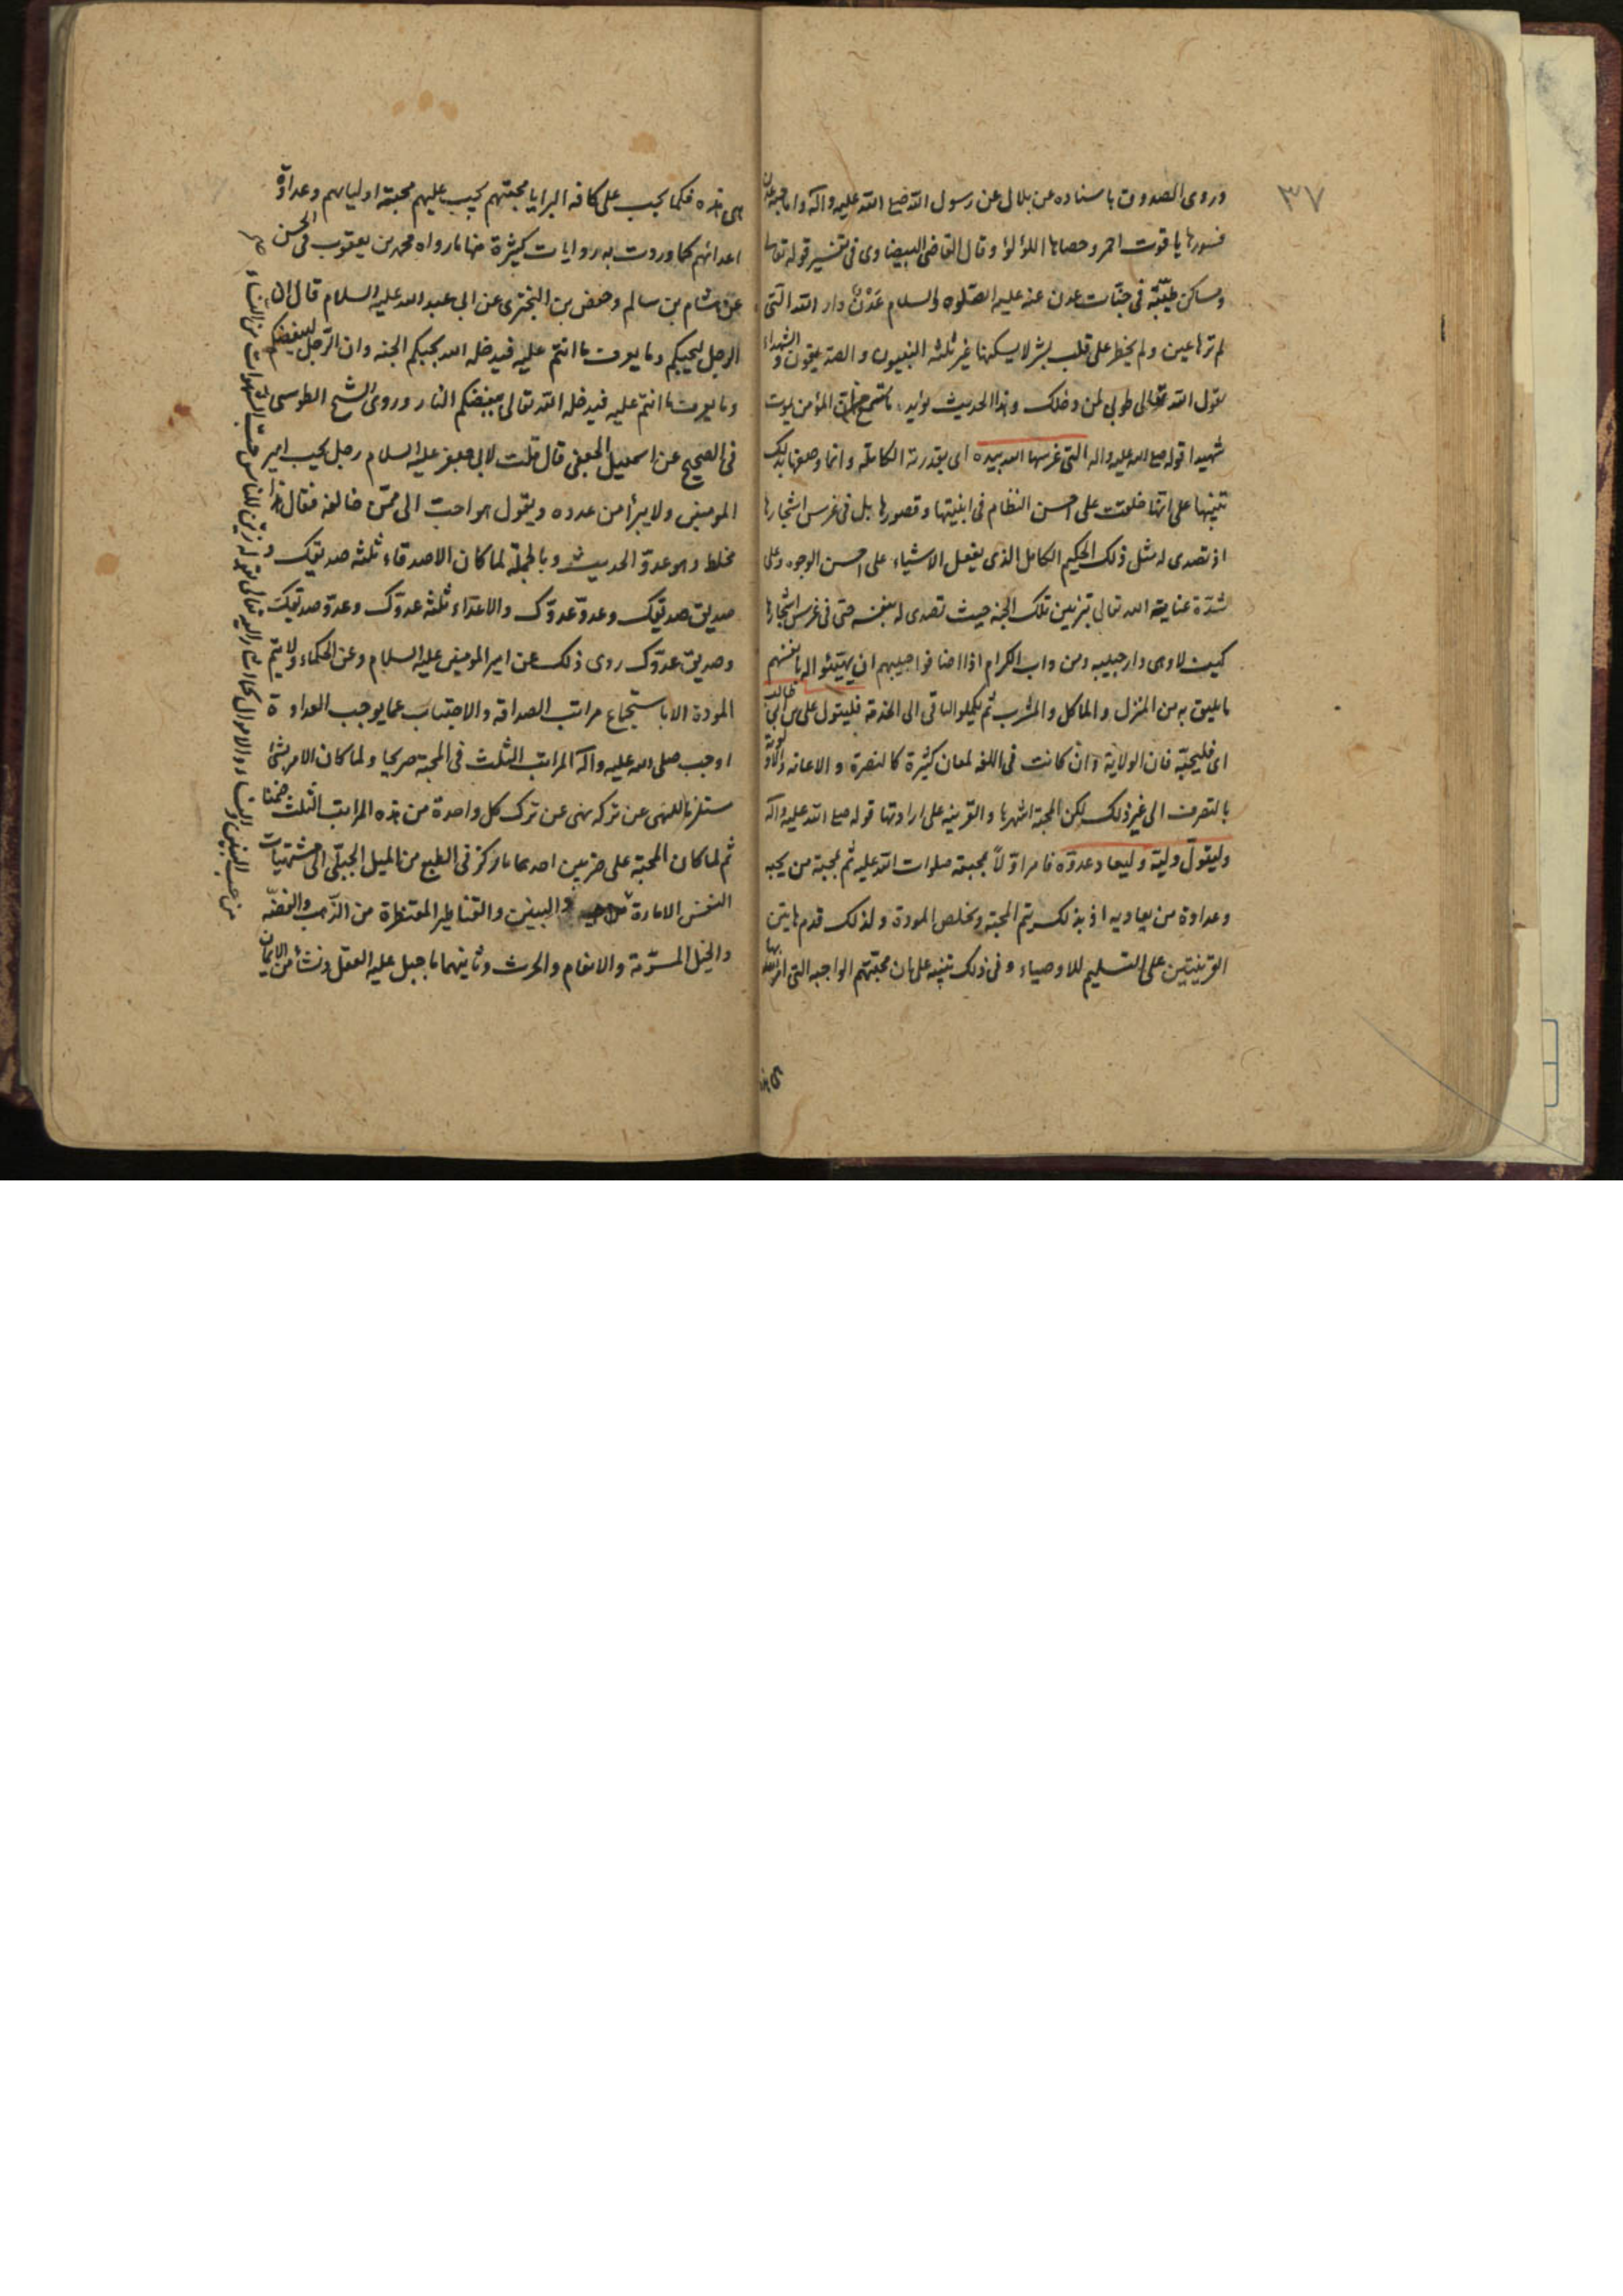 ٣٧
وروى الصدوق باسناده عن بلال عن رسول الله صلع الله عليه وآله واما جنة عدن
فسورها ياقوت احمر وحصاها اللؤلؤ وقال القاضى البيضاوى فى تفسير قوله تعالى
ومساكن طيّبة فى جنّات عدن عنه عليه الصّلوه والسلام عَدْنٌ دار الله التى
لم ترها عين ولم يخطر على قلب بشر لا يسكنها غير ثلثه النبيون والصديقون والشهداء
يقول الله تعالى طوبى لمن دخلك وهذا الحديث يؤيد ما ستسمع من ان المؤمن يموت
شهيدا قوله صلع الله عليه واله التى غرسها الله بيده اى بقدرته الكاملة وانما وصفها بذلك
تنبيها على انها خلقت على احسن النظام فى ابنيتها وقصورها بل فى غرس اشجارها
اذ تصدى له مثل ذلك الحكيم الكامل الذى يفعل الاشياء على احسن الوجوه وعلى
شدّة عناية الله تعالى بتزيين تلك الجنه حيث تصدى له بنفسه حتى فى غرس اشجارها
كيف لا وهى دار حبيبه ومن داب الكرام اذا اضافوا حبيبهم ان يهيّئوا له بانفسهم
ما يليق به من المنزل والماكل والمشرب ثم يكلوا الباقى الى الخدمة فليتول على بن ابى طالب
اى فليحبّه فان الولاية وان كانت فى اللغه لمعان كثيرة كالنصرة والاعانه والاولوية
بالتصرف الى غير ذلك لكن المحبة اشهرها والقرينه على ارادتها قوله صلع الله عليه وآله
وليتولّ وليّه وليعاد عدوّه فامر اوّلاً بمحبته صلوات الله عليه ثم بمحبة من يحبه
وعداوة من يعاديه اذ بذلك يتم المحبة ويخلص المودة ولذلك قدم هاتين
القرينتين على التسليم للاوصياء وفى ذلك تنبيه على ان محبّتهم الواجبه التى امر بها
هى هذه
هى هذه فكما يجب على كافه البرايا محبّتهم يجب عليهم محبة اوليائهم وعداوة
اعدائهم كما وردت به روايات كثيرة منها ما رواه محمد بن يعقوب فى الحسن
عن هشام بن سالم وحفص بن البخترى عن ابى عبد الله عليه السلام قال ان
الرجل ليحبكم وما يعرف ما انتم عليه فيدخله الله بحبكم الجنه وان الرّجل ليبغضكم
وما يعرف ما انتم عليه فيدخله الله تعالى ببغضكم النار وروى الشيخ الطوسى
فى الصحيح عن اسمعيل الجعفى قال قلت لابى جعفر عليه السلام رجل يحب امير
المومنين ولا يبرأ من عدوه ويقول هو احب الى ممّن خالفه فقال هذا
مخلط وهو عدوّ الحديث وبالجملة لما كان الاصدقاء ثلثه صديقك و
صديق صديقك وعدوّ عدوّك والاعداء ثلثه عدوّك وعدوّ صديقك
وصديق عدوّك روى ذلك عن امير المومنين عليه السلام وعن الحكماء ولا يتم
المودة الا باستجماع مراتب الصداقه والاجتناب عما يوجب العداوة
اوجب صلى الله عليه وآله المراتب الثلث فى المحبة صريحا ولما كان الامر بشئ
مستلزما للنهى عن تركه نهى عن ترك كل واحدة من هذه المراتب الثلث ضمنا
ثم لما كان المحبة على ضربين احدهما ما ركز فى الطبع من الميل الجبلّى الى مشتهيات
النفس الامارة والبنين والقناطير المقنطرة من الذّهب والفضّه
والخيل المسوّمة والانعام والحرث وثانيهما ما جبل عليه العقل ونشأ من الايمان
من حب البنين والنساء والاموال كما اشار اليه تعالى بقوله زيّن للناس حبّ الشهوات من النساء صح